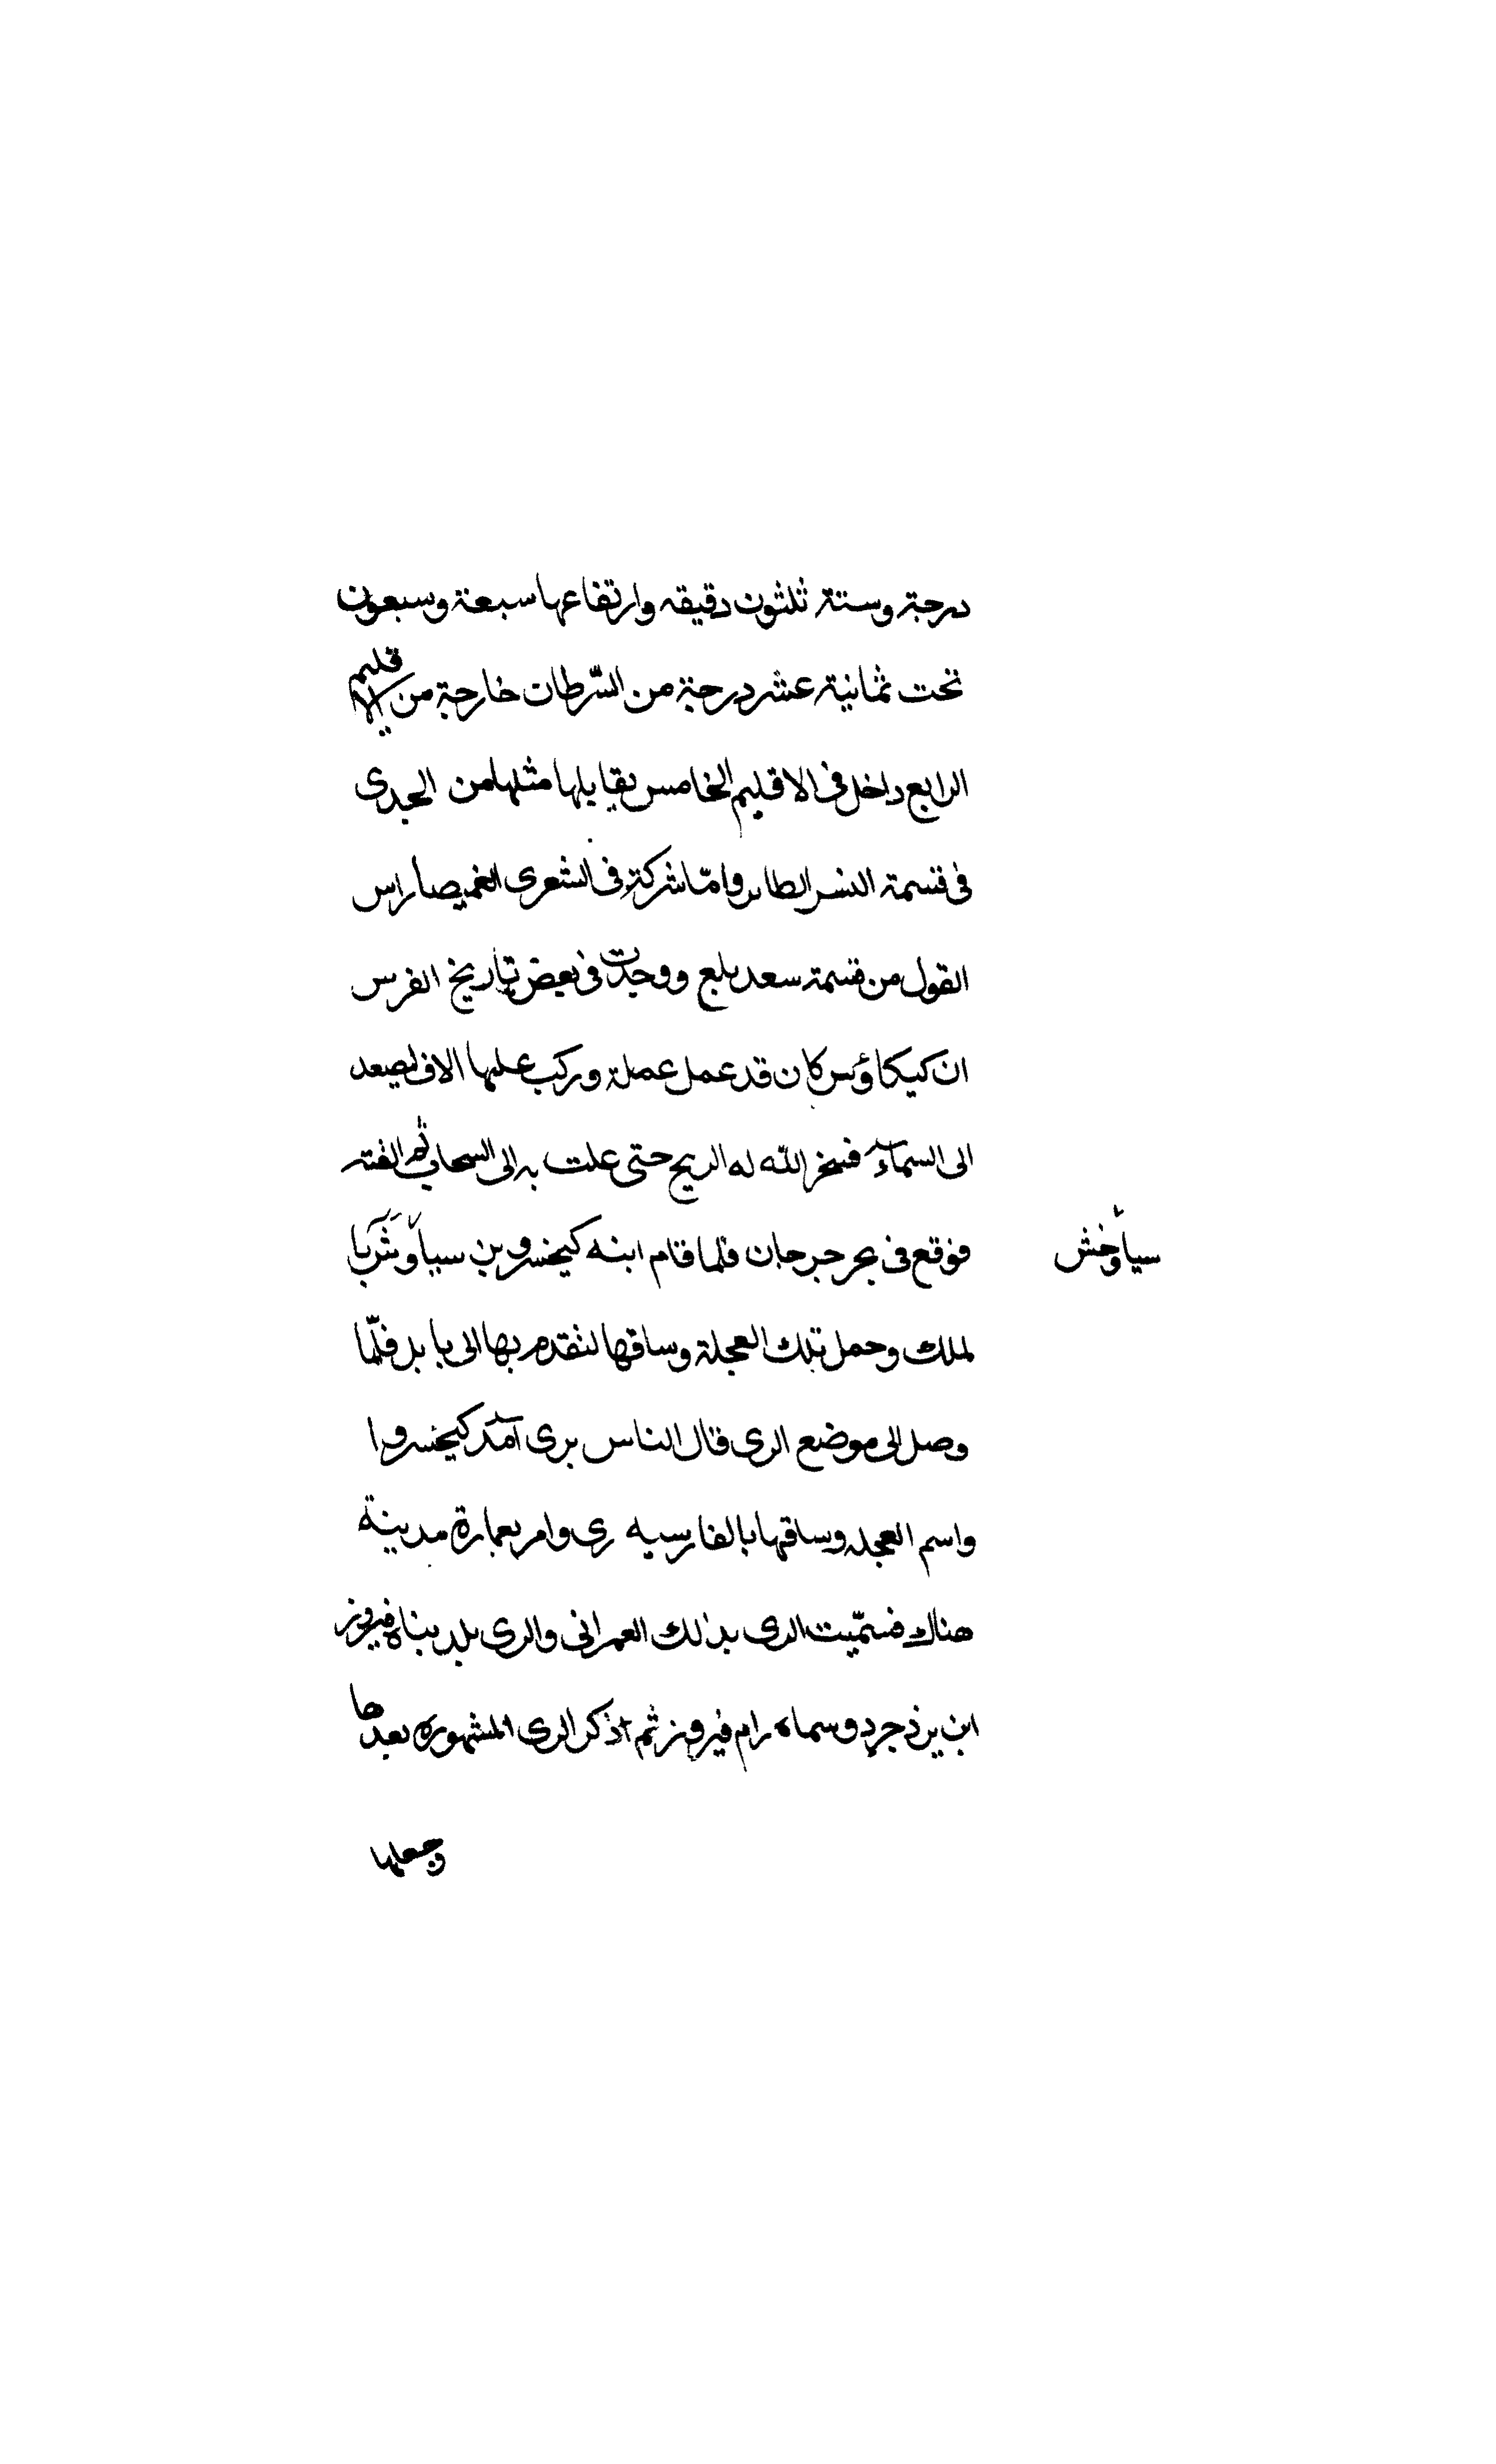 درجة وستة ثلثون دقيقه وارتفاعها سبعة وسبعون
تحت ثمانية عشر درجة من السّرطان خارجة من الاقليم
الرابع داخل فى الاقليم الخامس يقابلها مثلها من الجدى
فى قسمة النسر الطاير وامّا شركة فى الشعرى الغميصا راس
القول من قسمة سعد بلع ووجدت فى بعض تاريخ الفرس
ان كيكاؤس كان قد عمل عملة وركب عليها الاف ليصعد
الى السمآء فسخر الله له الريح حتى علت به الى السحاب ثم الفته
فوقع فى بحر جرجان فلما قام ابنه كيخسرو بن سياوش با
سياوخش
لملك وحمل تلك العجلة وساقها لتقدم بها الى بابل فلّما
وصل الى موضع الرى قال الناس برى آمد كيخسرو ا
واسم العجله وساقها بالفارسيه رى وامر بعمارة مدينة
هناك فسمّيت الرى بذلك العمرانى والرى بلد بناه فيروز
ابن يزذجرد وسماه رام فيروز ثم اذكر الرى المشهوره بعدها
وجعلها